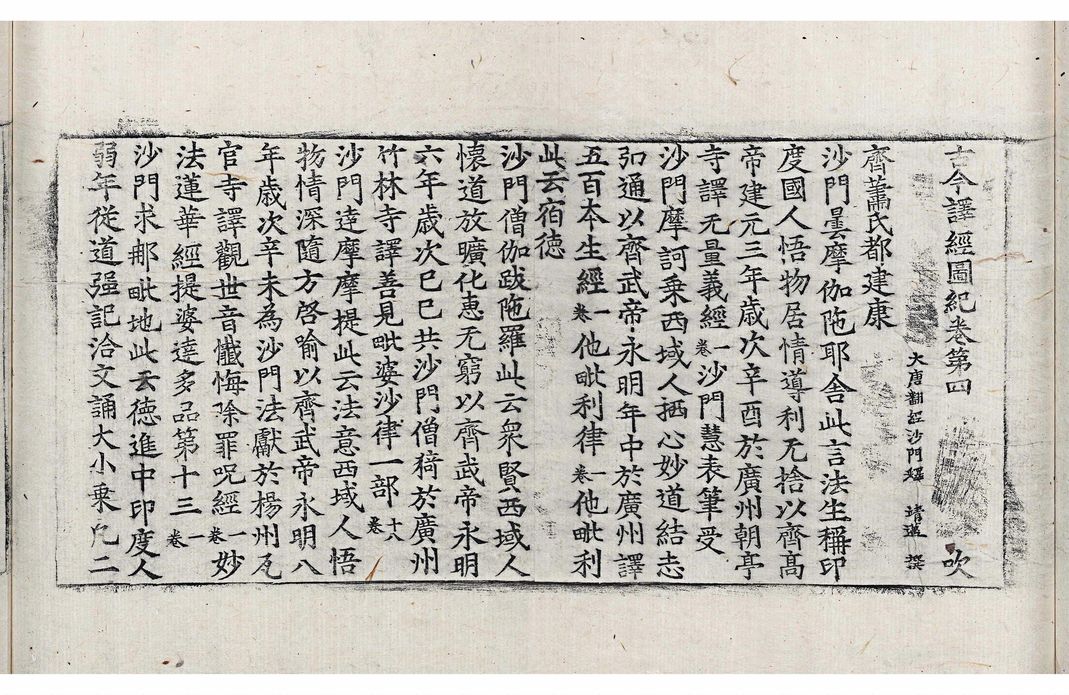 古今譯經圖紀卷第四　吹
大唐翻經沙門釋靖邁撰
齊蕭氏都建康
沙門曇摩伽陁耶舍此言法生稱印
度國人悟物居情導利无捨以齊高
帝建元三年歲次辛酉於廣州朝亭
寺譯无量義經一卷沙門慧表筆受
沙門摩訶乗西域人栖心妙道結志
弘通以齊武帝永明年中於廣州譯
五百本生經一卷他毗利律一卷他毗利
此云宿徳
沙門僧伽跋陁羅此云衆賢西域人
懷道放曠化惠无窮以齊武帝永明
六年歲次巳巳共沙門僧猗於廣州
竹林寺譯善見毗婆沙律一部十八卷
沙門達摩摩提此云法意西域人悟
物情深隨方啓喻以齊武帝永明八
年歲次辛未為沙門法獻於楊州瓦
官寺譯觀世音懺悔除罪呪經一卷妙
法蓮華經提婆達多品第十三一卷
沙門求那毗地此云徳進中印度人
弱年從道强記洽文誦大小乗凡二